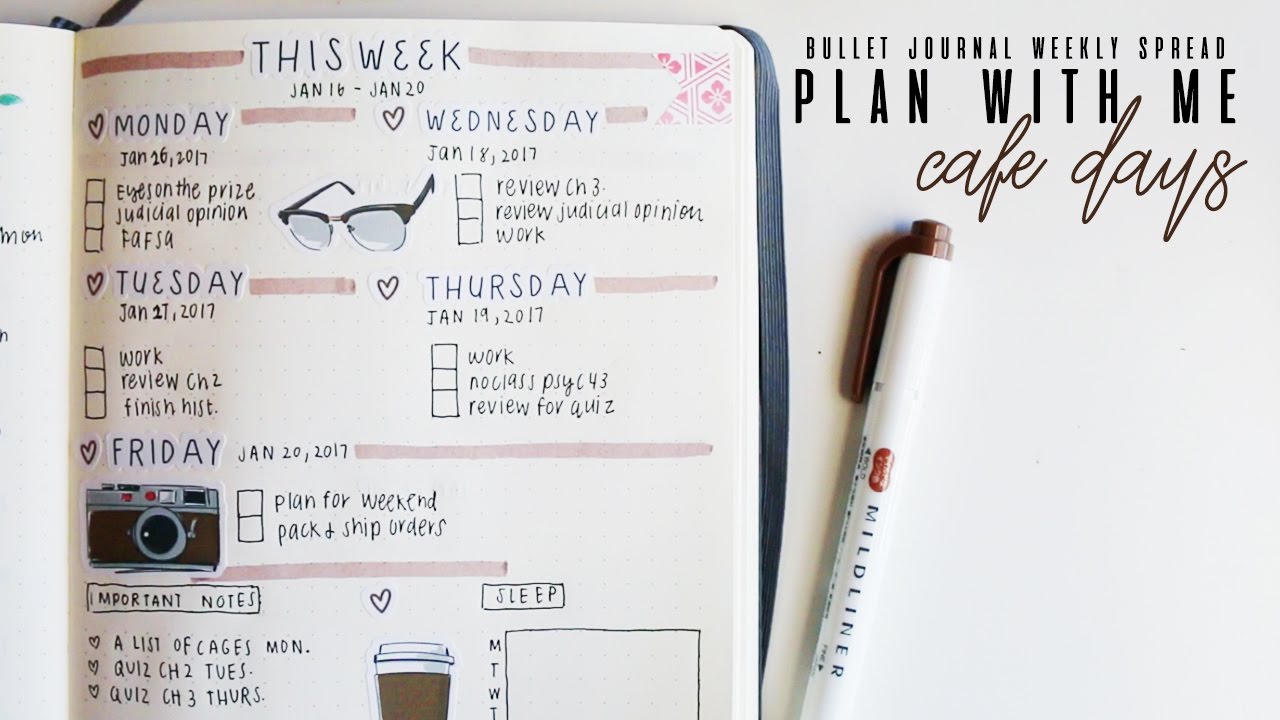 BULLET JOURNAL WEEKLY SPREAD
PLAN WITH ME
cafe days
THIS WEEK
JAN 16 - JAN 20
MONDAY
Jan 26, 2017
Eyes on the prize
judicial opinion
FAFSA
WEDNESDAY
Jan 18, 2017
review Ch 3.
review judicial opinion
work
TUESDAY
Jan 17, 2017
work
review Ch 2
finish hist.
THURSDAY
JAN 19, 2017
work
no class psyc 43
review for quiz
FRIDAY JAN 20, 2017
plan for weekend
pack & ship orders
IMPORTANT NOTES
A LIST OF CAGES MON.
QUIZ CH 2 TUES.
QUIZ CH 3 THURS.
SLEEP
M
T
W
T
MILDLINER
FINE